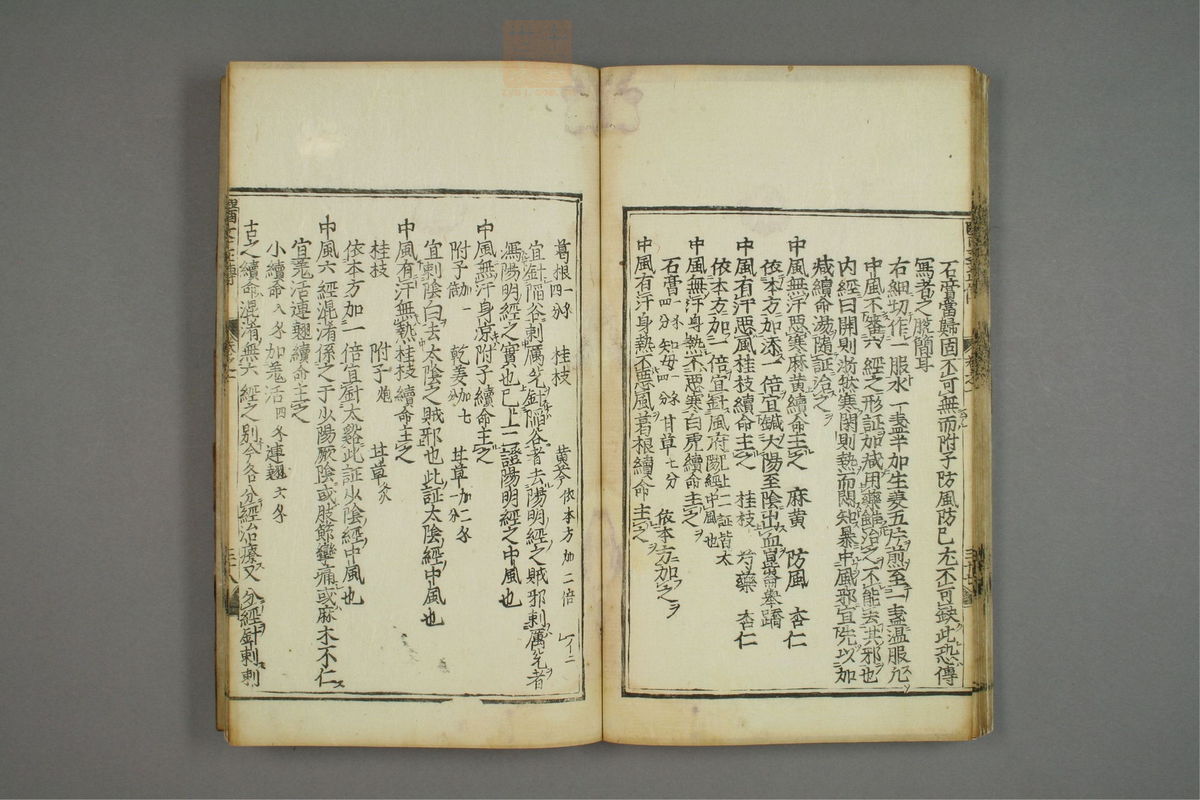 石膏當歸固不可無而附子防風防已尤不可缺此恐傳
寫者之脫簡耳
右細切作一服水一盞半加生姜五片煎至一盞温服凡
中風不審六經之形証加减用藥雖治之不能去其邪也
内經曰開則淅然寒閉則熱而悶知暴中風邪宜先以加
减續命湯隨証治之
中風無汗惡寒麻黄續命主之 麻黄 防風 杏仁
依本方加添一倍宜鍼太陽至陰出血崑崙舉蹻
中風有汗惡風桂枝續命主之 桂枝 芍藥 杏仁
依本方加一倍宜針風府已上二証皆太陽經中風也
中風無汗身熱不惡寒白虎續命主之
石膏 知母一分四 甘草七分 依本方加之
中風有汗身熱不惡風葛根續命主之
葛根 桂枝 黄芩依本方加二倍
宜針陷谷刺厲兌針陷谷者去陽明經之賊邪刺厲兌者
瀉陽明經之實也已上二證陽明經之中風也
中風無汗身凉附子續命主之
附子加一 乾姜加七分 甘草加二
宜刺隱白去太陰之賊邪也此証太陰經中風也
中風有汗無熱桂枝續命主之
桂枝 附子炮 甘草炙
依本方加一倍宜針太谿此証少陰經中風也
中風六經混淆係之于少陽厥陰或肢節攣痛或麻木不仁
宜羗活連翹續命主之
小續命八 加羗活四 連翹六
古之續命混淆無六經之別今各分經治療又分經針刺刺